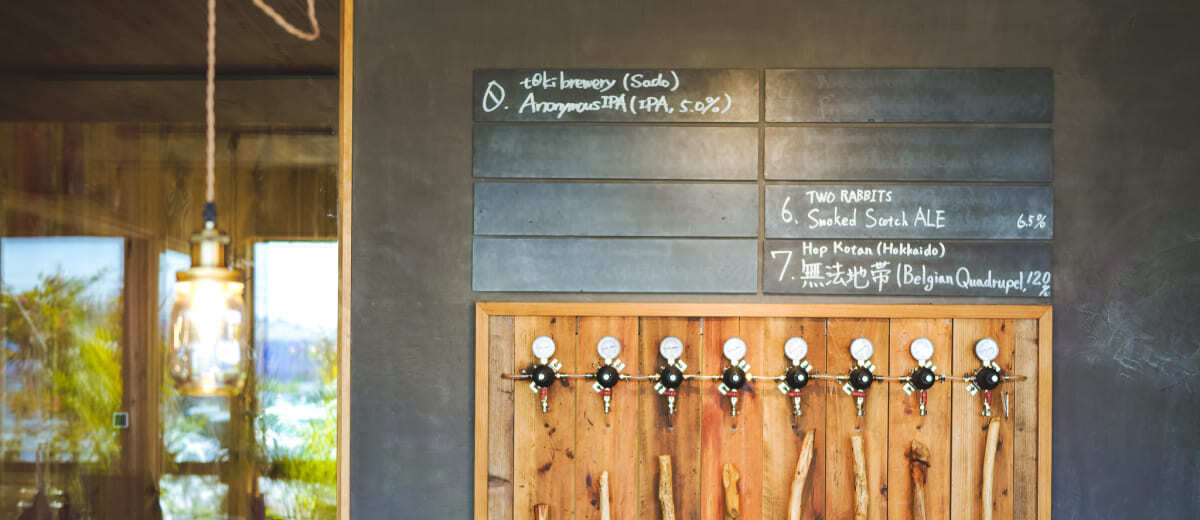 0. tØki brewery (Sado)
Anonymous IPA (IPA, 5.0%)
6. TWO RABBITS
Smoked Scotch ALE 6.5%
7. Hop Kotan (Hokkaido)
無法地帯 (Belgian Quadrupel, 12.0%